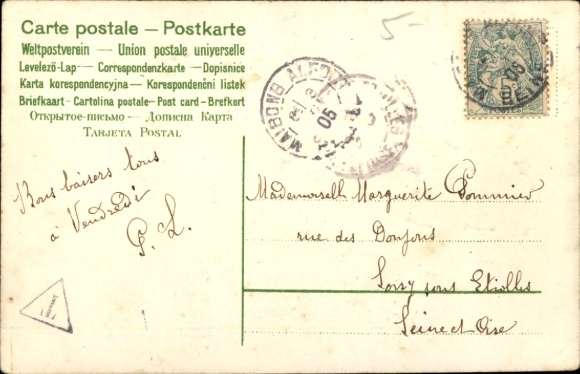 Carte postale — Postkarte
Weltpostverein — Union postale universelle
Levelező-Lap — Correspondenzkarte — Dopisnice
Karta korespondencyjna — Korespondenční listek
Briefkaart - Cartolina postale - Post card - Brefkort
Открытое-письмо — Дописна Карта
TARJETA POSTAL
5-
MAISONS ALFORT
06
06
Bons baisers tous
à Vendredi
P. L.
Mademoiselle Marguerite Pommier
rue des Donjons
Soisy sous Etiolles
Seine et Oise